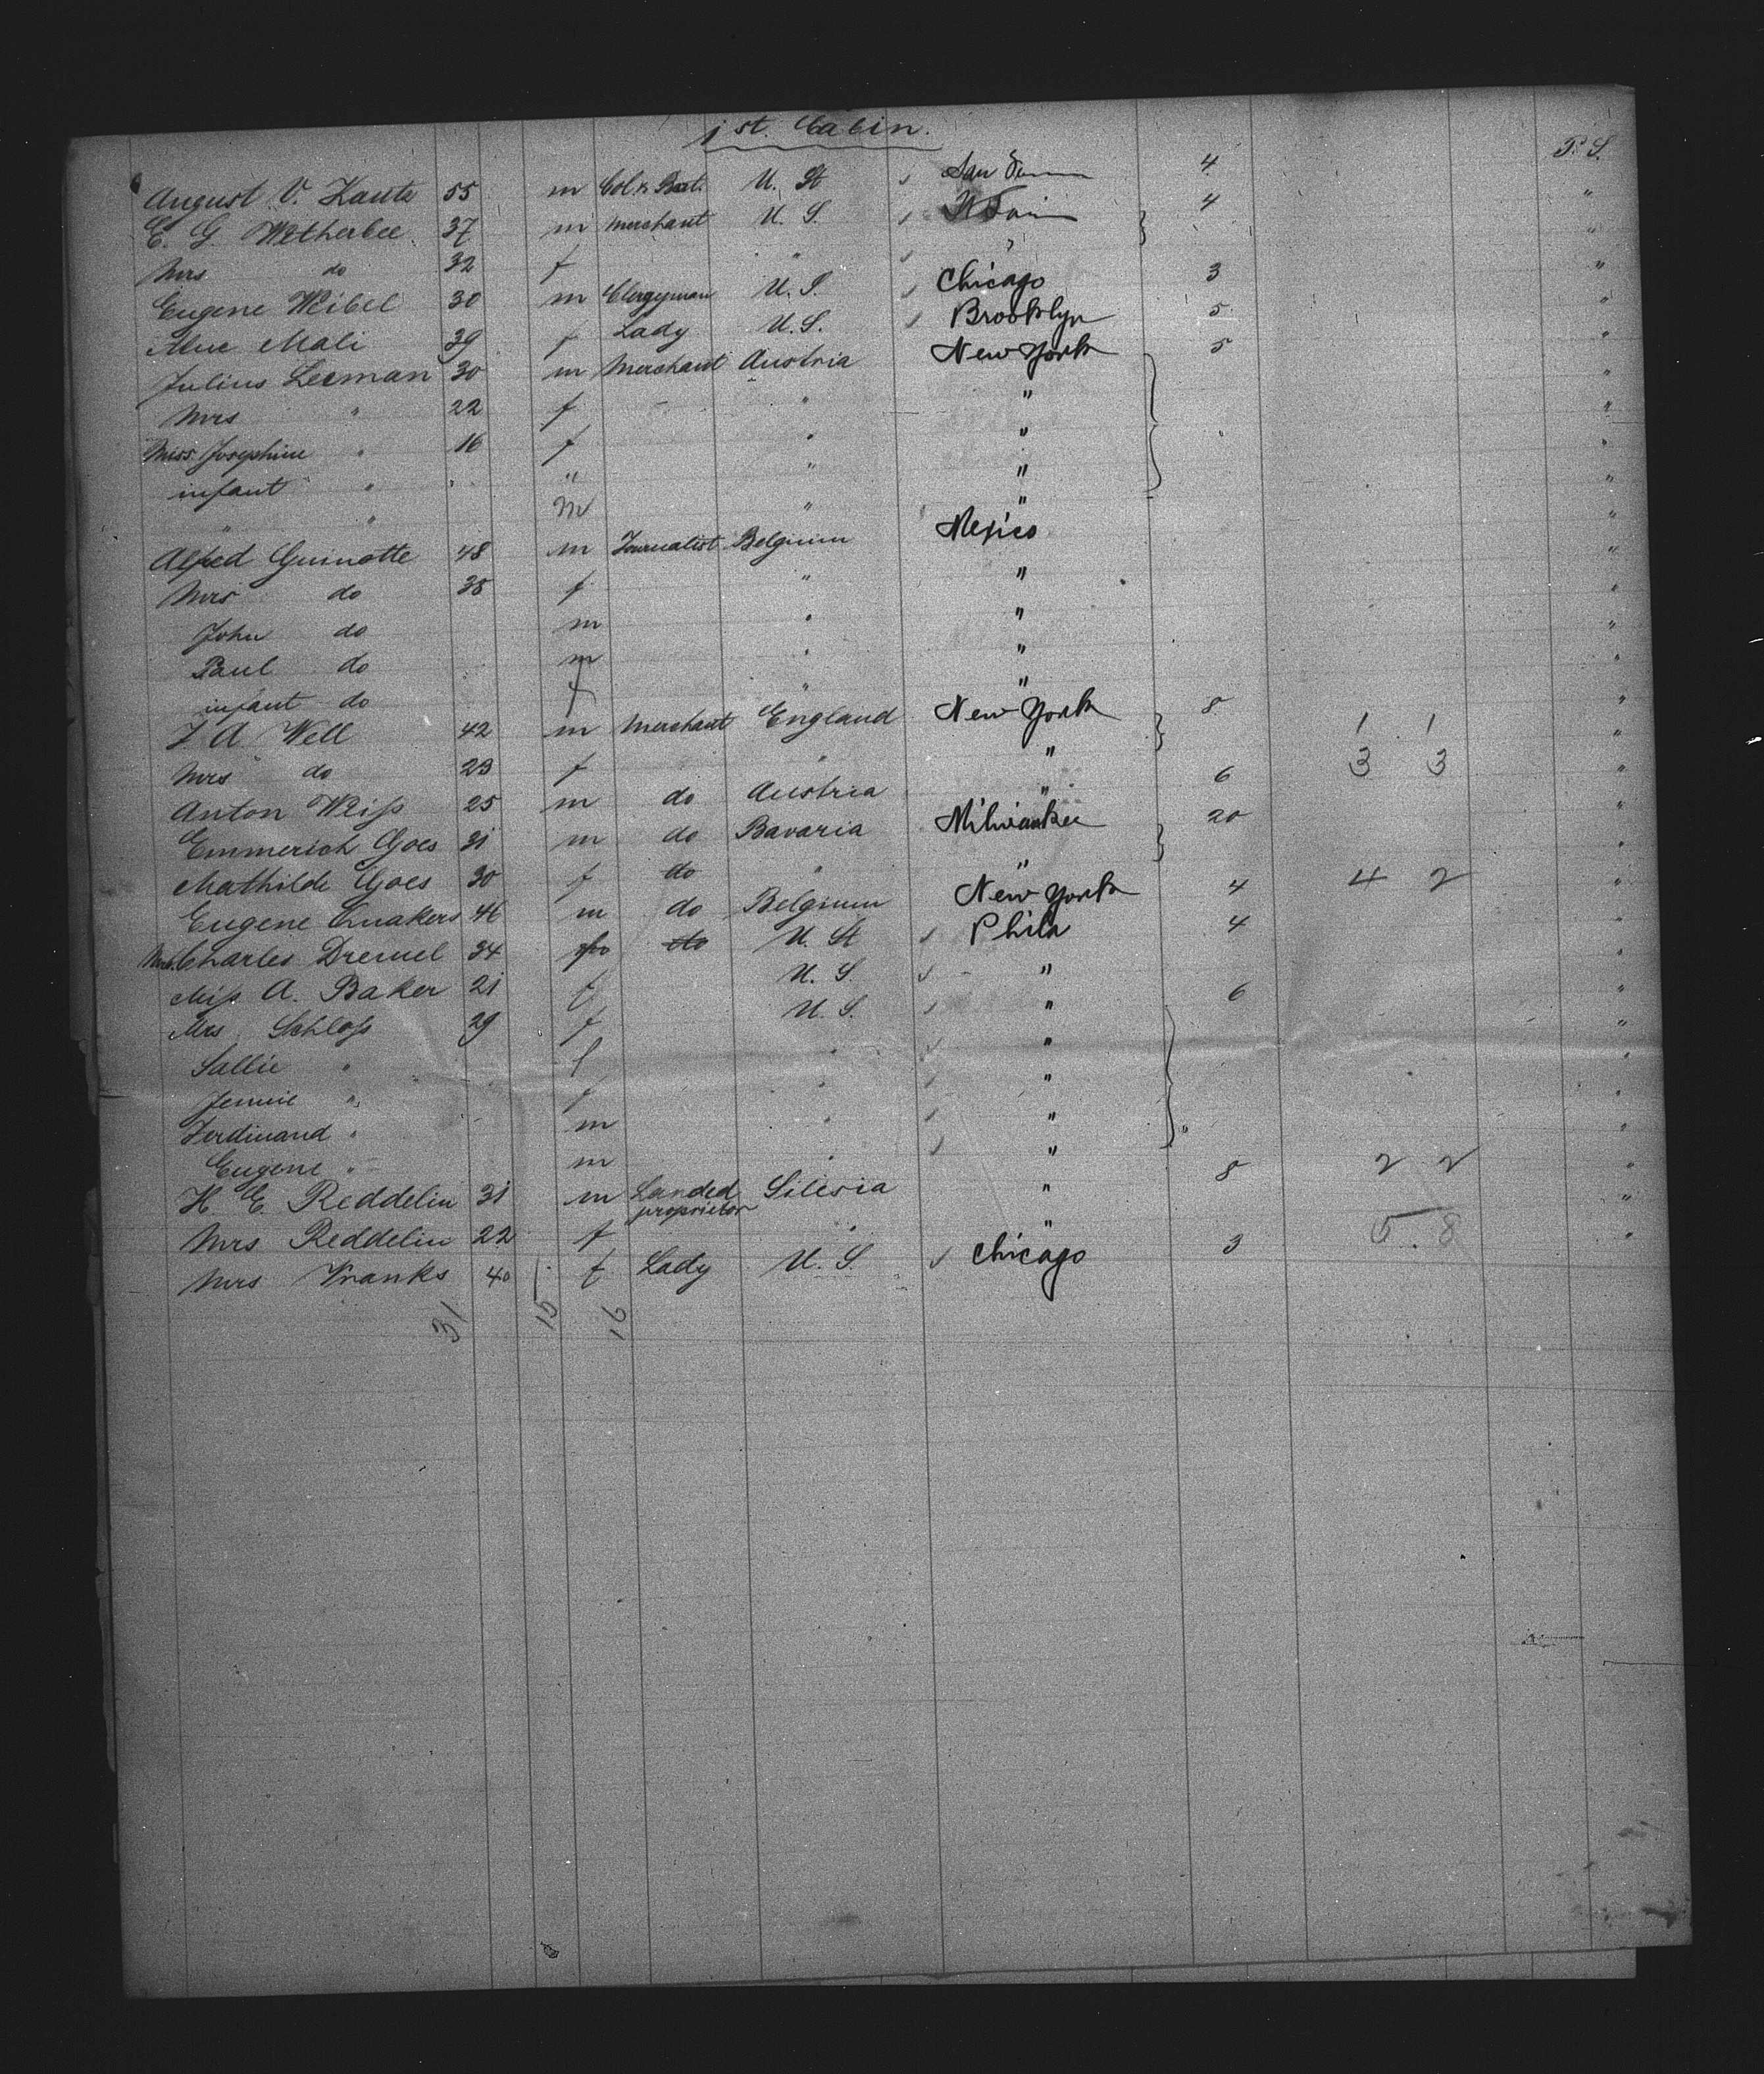 1st. Cabin.
P. S.
August V. Kautz 55 m U. St San 4
E. G. Wetherbee 37 m merchant U. S. 4 "
Mrs do 32 f " " "
Eugene Weibel 30 m Clergyman U. S. Chicago 3 "
Mali 39 f Lady U. S. Brooklyn 5 "
Julius Leeman 30 m Merchant Austria New York 5 "
Mrs " 22 f " " "
Miss Josephine " 16 f " " "
infant " " " " "
" " m " " "
Alfred Guinotte 48 m Journalist Belgium Mexico "
Mrs do 38 f " " "
John do m " " "
Paul do m " " "
infant do f " " "
J A Well 42 m Merchant England New York 8 1 1 "
Mrs do 29 f " " 3 3 "
Anton Weiss 25 m do Austria " 6 "
Emmerich Goes 31 m do Bavaria Milwaukee 20 "
Mathilde Goes 30 f do " " "
Eugene Quakers 46 m do Belgium New York 4 4 2 "
Mrs. Charles Dremel 34 do U. St Phila 4 "
Miss A. Baker 21 f U. S. " "
Mrs Schloss 29 f U. S. " 6 "
Sallie " f " " "
Jennie " f " " "
Ferdinand " m " " "
Eugene " m " " "
H. E. Reddelin 31 m Landed proprietor Silesia " 8 2 2 "
Mrs Reddelin 22 f " " 5 8 "
Mrs Franks 40 f Lady U. S. Chicago 3 "
31 15 16